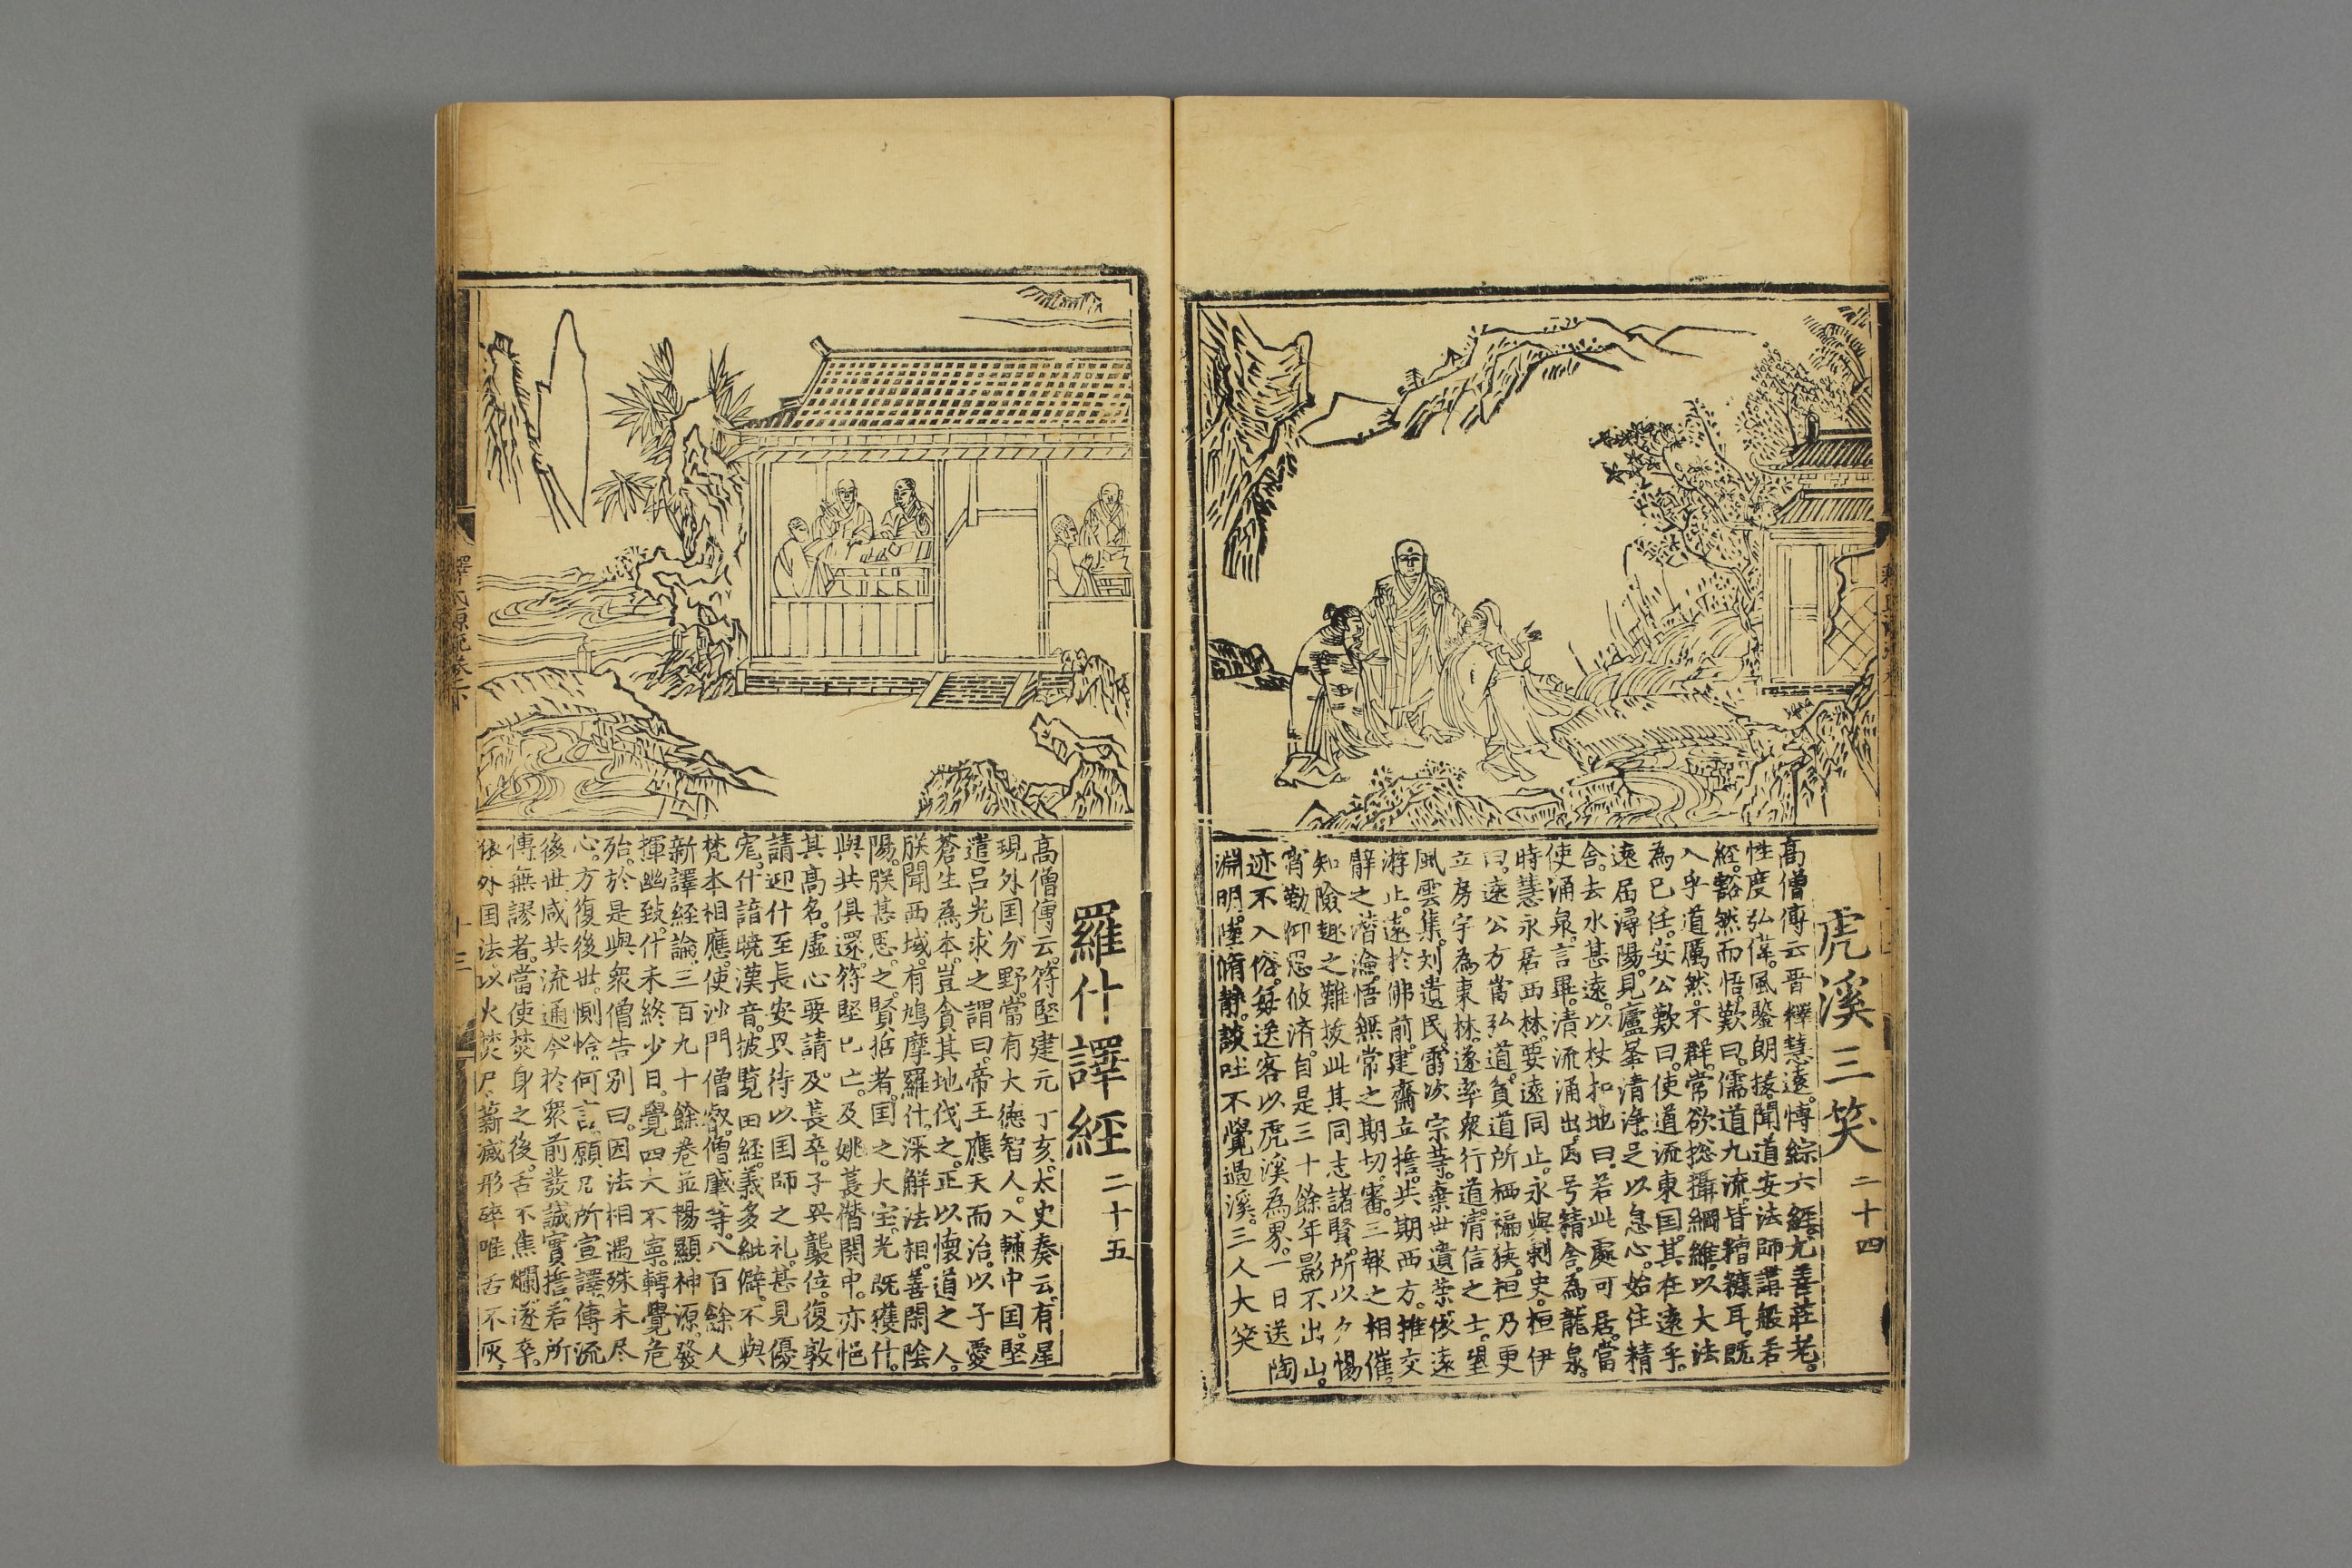 虎溪三笑 二十四
高僧傳云晋釋慧遠。博綜六經。尤善莊老。
性度弘偉。風鑒朗拔。聞道安法師講般若
經。豁然而悟。歎曰。儒道九流。皆糟糠耳。既
入乎道。厲然不群。常欲揔攝綱維。以大法
為已任。安公歎曰。使道流東囯。其在遠乎。
遠届潯陽。見廬峯清淨。足以息心。始住精
舍。去水甚遠。以杖扣地曰。若此處可居。當
使涌泉。言畢。清流涌出。因号精舍。為龍泉。
時慧永居西林。要遠同止。永與刺史。桓伊
曰。遠公方當弘道。貧道所栖褊狹。桓乃更
立房宇為東林。遂率衆行道。清信之士。望
風雲集。刘遺民。雷次宗等。棄世遺荣。依遠
游止。遠於佛前。建齋立擔。共期西方。推交
辭之潛淪。悟無常之期切。審三報之相催。
知險趣之難拔。此其同志諸賢。所以夕惕
宵勤。仰思攸济。自是三十餘年影不出山。
迹不入俗。每送客以虎溪為界。一日送陶
淵明。陸脩静。談吐不覺過溪。三人大笑
羅什譯經 二十五
高僧傳云。符堅建元丁亥。太史奏云。有星
現外囯分野。當有大德智人。入輔中囯。堅
遣呂光求之。謂曰。帝王應天而治。以子愛
蒼生為本。豈貪其地伐之。正以懷道之人。
朕聞西域。有鳩摩羅什。深解法相。善閑陰
陽。朕甚思之。賢指者。囯之大宝。光既獲什。
與共俱還。符堅已亡。及姚萇僭関中。亦悒
其高名。虛心要請。及萇卒。子𠔃襲位。復敦
請迎什至長安。𠔃待以囯師之礼。甚見優
寵。什諳曉漢音。披覧田經。義多紕僻。不與
梵本相應。使沙門僧叡。僧肇等。八百餘人
新譯経論。三百九十餘卷並暢顯神源。發
揮幽致。什未終少日。覺四大不寧。轉覺危
殆。於是與衆僧告别曰。因法相遇殊未尽
心。方復後世。惻怆何言。願凡所宣譯。傳流
後世。咸共流通。今於衆前發誠實擔。若所
傳無謬者。當使焚身之後。舌不焦爛。遂卒。
依外囯法。以火焚尸。薪滅形碎唯舌不灰。
釋氏源流卷下
十三